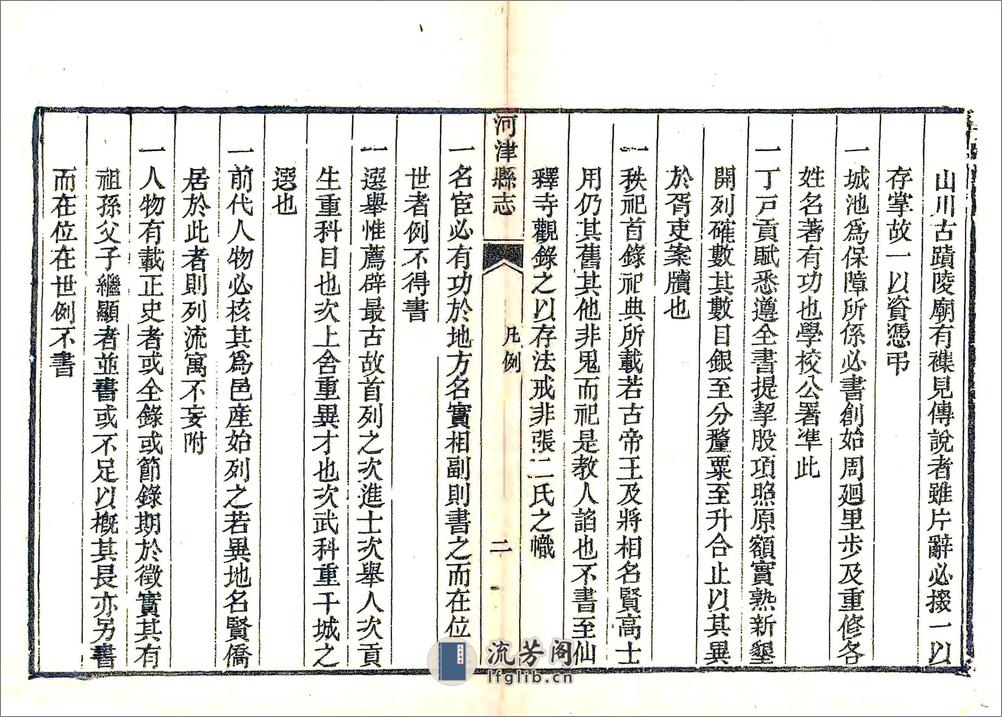 山川古蹟陵廟有襍見傳說者雖片辭必掇一以
存掌故一以資憑弔
一城池爲保障所係必書創始周廻里步及重修各
姓名著有功也學校公署準此
一丁戸貢賦悉遵全書提挈股項照原額實熟新墾
開列確數其數目銀至分釐粟至升合止以其異
於胥吏案牘也
一秩祀首錄祀典所載若古帝王及將相名賢高士
用仍其舊其他非鬼而祀是教人諂也不書至仙
釋寺觀錄之以存法戒非張二氏之幟
河津縣志
凡例
二
一名宦必有功於地方名實相副則書之而在位
世者例不得書
一選舉惟薦辟最古故首列之次進士次舉人次貢
生重科目也次上舍重異才也次武科重干城之
選也
一前代人物必核其爲邑産始列之若異地名賢僑
居於此者則列流寓不妄附
一人物有載正史者或全錄或節錄期於徵實其有
祖孫父子繼顯者並書或不足以概其長亦另書
而在位在世例不書
流芳阁
lfglib.cn